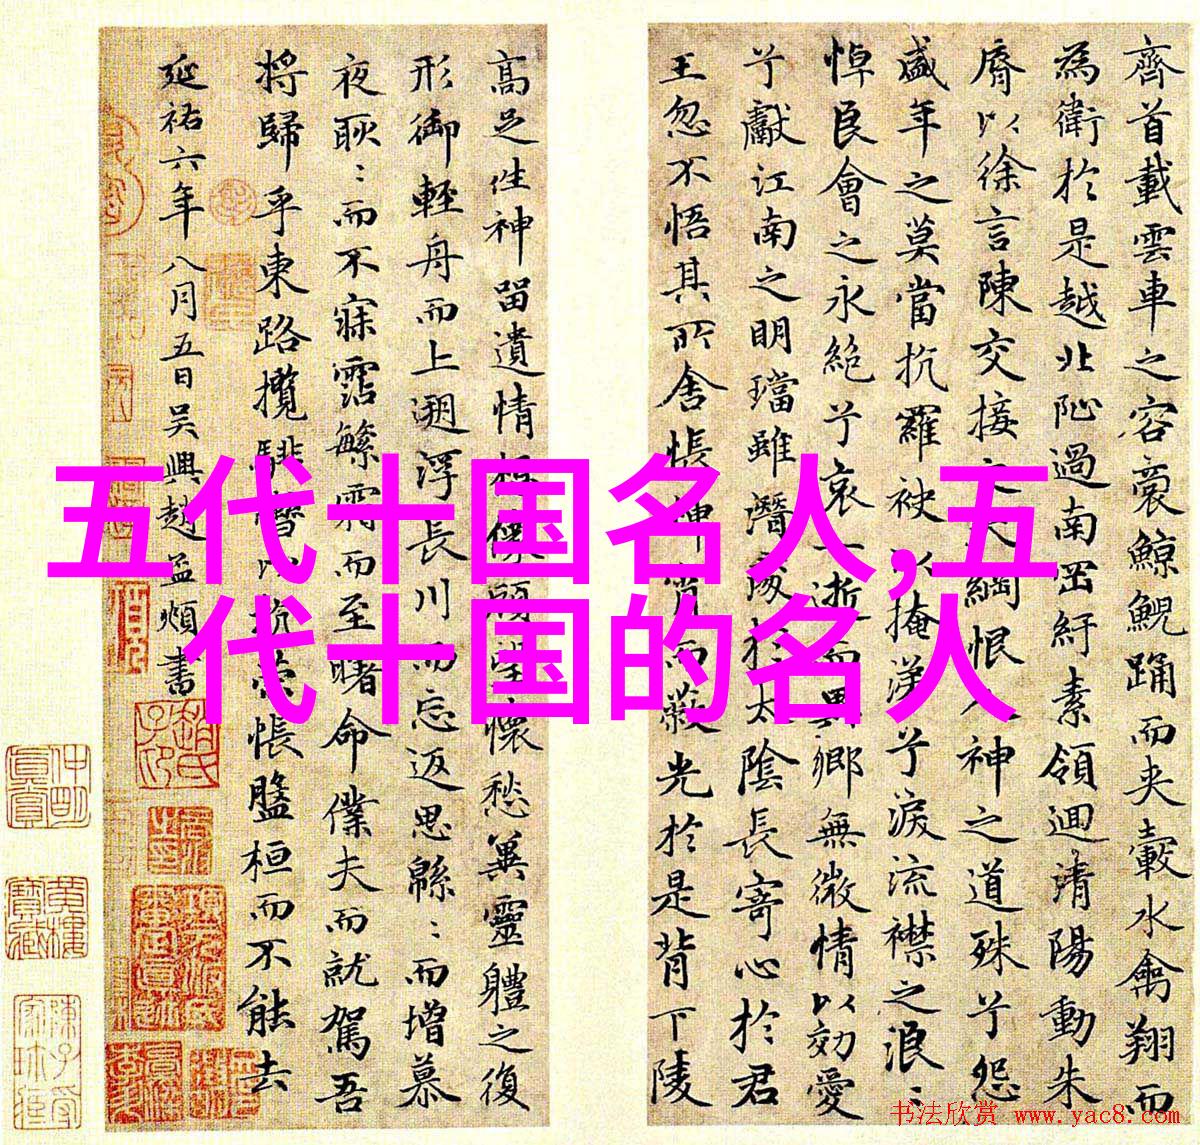 齊首載雲車之容裔鯨鯢踊而夾轂水禽翔而
為衛於是越北沚過南岡紆素領迴清陽動朱
脣以徐言陳交接之大綱恨人神之道殊兮怨
盛年之莫當抗羅袂以掩涕兮淚流襟之浪:
悼良會之永絕兮哀一逝而異鄉無微情以効愛
兮獻江南之明璫雖潛處於太陰長寄心於君
王忽不悟其所舍悵神宵而蔽光於是背下陵
高足往神留遺情想像顧望懷愁冀靈體之復
形御輕舟而上遡浮長川而忘返思緜:而增慕
夜耿:而不寐霑繁霜而至曙命僕夫而就駕吾
將歸乎東路攬騑轡以抗策悵盤桓而不能去
延祐六年八月五日吳興趙孟頫書
五代十国名人,五
代十国的名人
书法欣赏 www.yac8.com